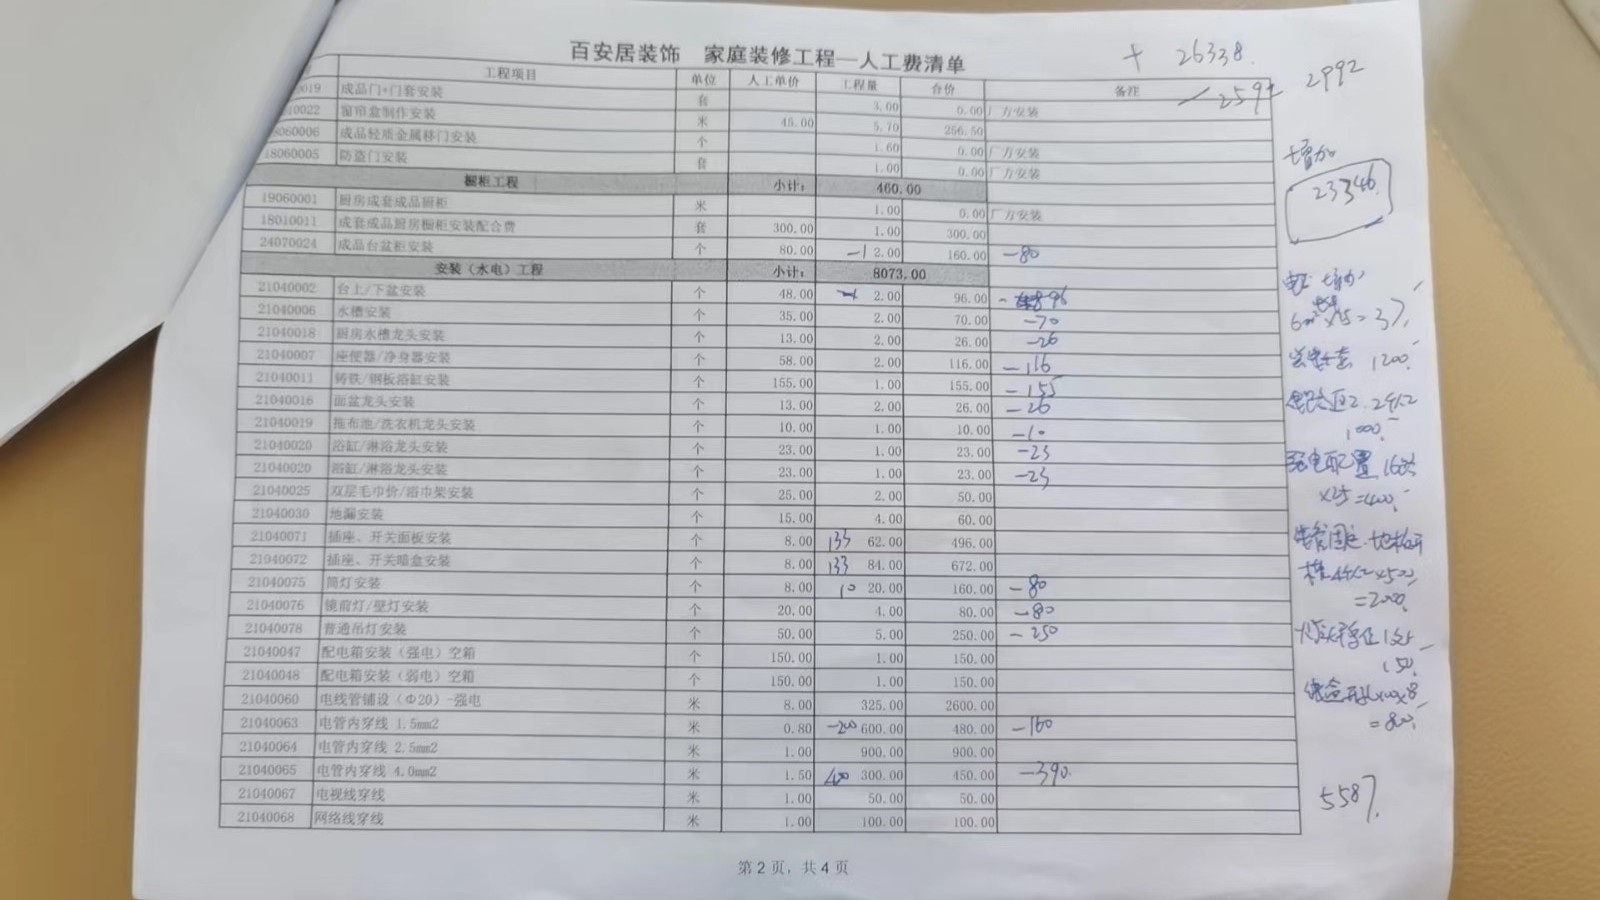 百安居装饰 家庭装修工程—人工费清单
+ 26338.
2992
工程项目 单位 人工单价 工程量 合价 备注
0019 成品门+门套安装 套 3.00 0.00 厂方安装
0022 窗帘盒制作安装 米 45.00 5.70 256.50
8060006 成品轻质金属移门安装 个 1.60 0.00 厂方安装
18060005 防盗门安装 套 1.00 0.00 厂方安装
增加
23346.
橱柜工程 小计: 460.00
19060001 厨房成套成品厨柜 米 1.00 0.00 厂方安装
18010011 成套成品厨房橱柜安装配合费 套 300.00 1.00 300.00
24070024 成品台盆柜安装 个 80.00 -1 2.00 160.00 -80
安装(水电)工程 小计: 8073.00
21040002 台上/下盆安装 个 48.00 2.00 96.00 96
21040006 水槽安装 个 35.00 2.00 70.00 -70
21040018 厨房水槽龙头安装 个 13.00 2.00 26.00 -26
21040007 座便器/净身器安装 个 58.00 2.00 116.00 -116
1200.
21040011 铸铁/钢板浴缸安装 个 155.00 1.00 155.00 -155
21040016 面盆龙头安装 个 13.00 2.00 26.00 -26
21040019 拖布池/洗衣机龙头安装 个 10.00 1.00 10.00 -10
1000.
21040020 浴缸/淋浴龙头安装 个 23.00 1.00 23.00 -23
21040020 浴缸/淋浴龙头安装 个 23.00 1.00 23.00 -23
21040025 双层毛巾价/浴巾架安装 个 25.00 2.00 50.00
×25=400.
21040030 地漏安装 个 15.00 4.00 60.00
21040071 插座、开关面板安装 个 8.00 133 62.00 496.00
21040072 插座、开关暗盒安装 个 8.00 133 84.00 672.00
21040075 筒灯安装 个 8.00 10 20.00 160.00 -80
=2000.
21040076 镜前灯/壁灯安装 个 20.00 4.00 80.00 -80
21040078 普通吊灯安装 个 50.00 5.00 250.00 -250
21040047 配电箱安装(强电)空箱 个 150.00 1.00 150.00
150.
21040048 配电箱安装(弱电)空箱 个 150.00 1.00 150.00
21040060 电线管铺设(Φ20)-强电 米 8.00 325.00 2600.00
=800.
21040063 电管内穿线 1.5mm2 米 0.80 -200 600.00 480.00 -160
21040064 电管内穿线 2.5mm2 米 1.00 900.00 900.00
21040065 电管内穿线 4.0mm2 米 1.50 400 300.00 450.00 -390.
21040067 电视线穿线 米 1.00 50.00 50.00
5587.
21040068 网络线穿线 米 1.00 100.00 100.00
第 2 页, 共 4 页